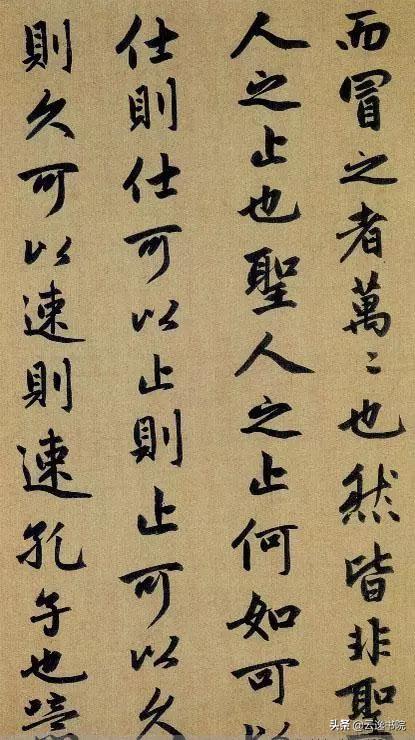 而冒之者萬〻也然皆非聖
人之止也聖人之止何如可以
仕則仕可以止則止可以久
則久可以速則速孔子也噫
头条 @云逸书院